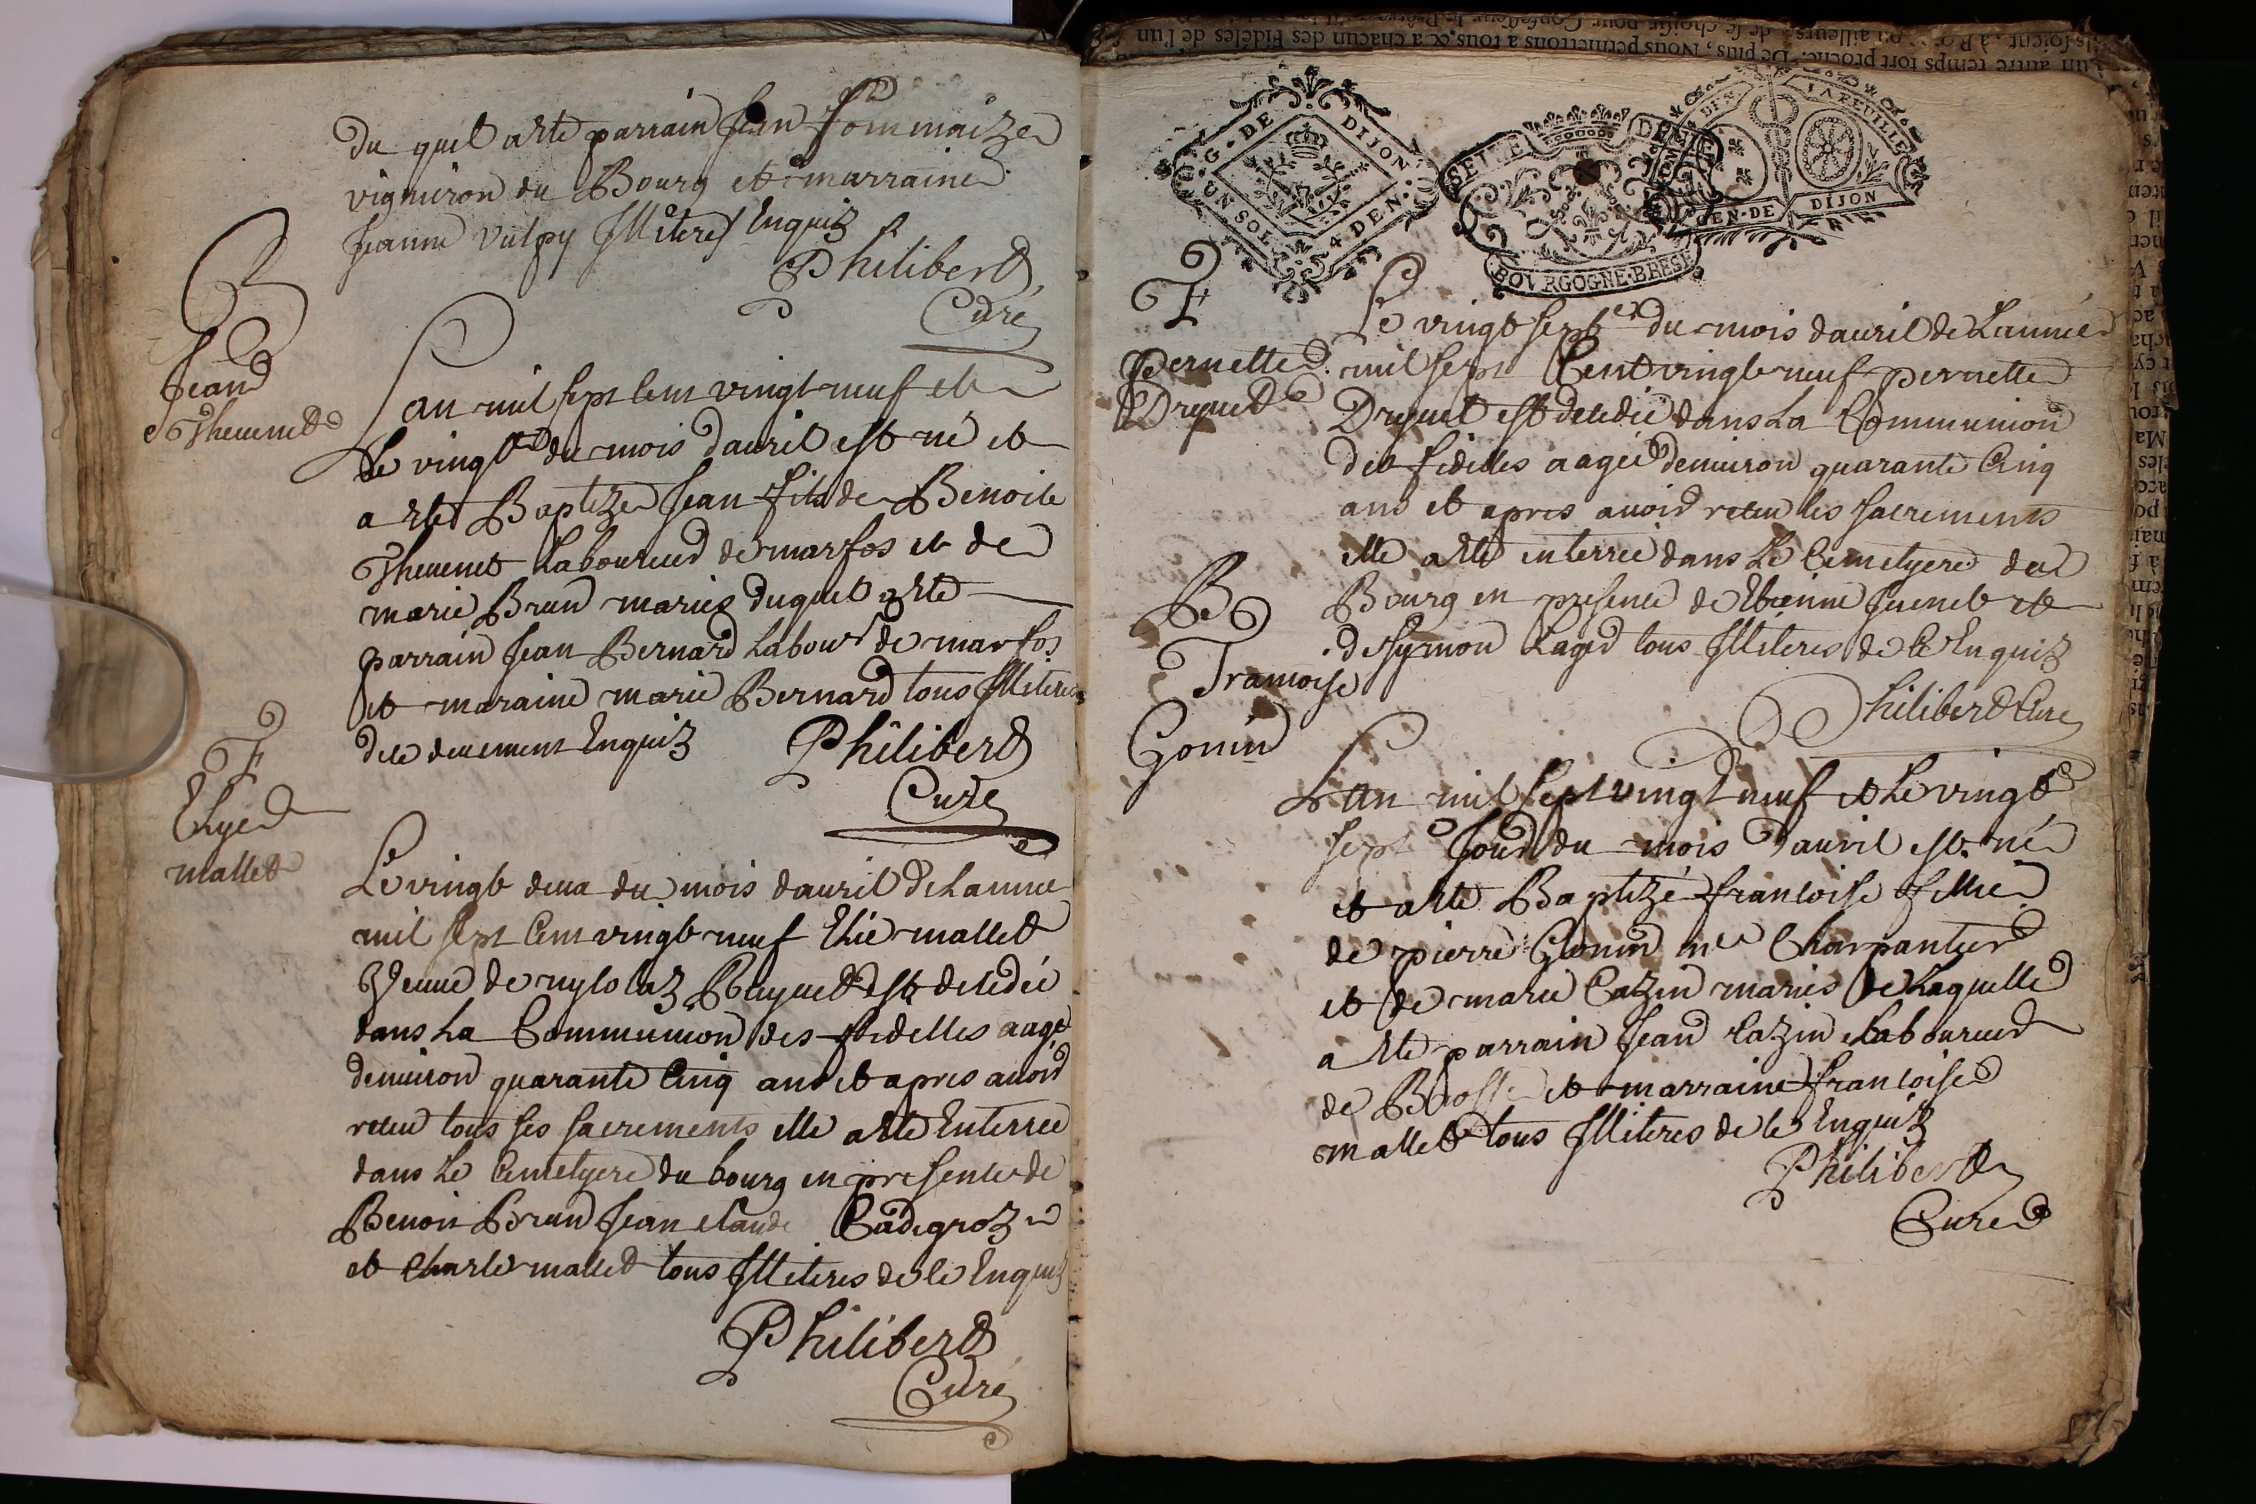 du quel a êté parrain Jean Pommaize
vigniron du Bourg et marraine
Jeanne vulpy Illiterés Enquiz
Philibert
Curé
B
Jean
Thevenet
L'an mil sept Cent vingt neuf et
Le vingt du mois d'auril est né et
a êté Baptizé Jean fils de Benoite
Thevenet Laboureur de marfos et de
marie Brun mariés duquel a êté
parrain Jean Bernard Labour de marfos
et maraine marie Bernard tous Illiteres
de ce deuement Enquiz
Philibert
Curé
F
Elye
mallet
Le vingt deux du mois d'auril de Lannee
mil sept Cent vingt neuf Elie mallet
Veuue de Nylolaz est decedée
dans La Communion des fidelles aagé
denuiron quarante Cinq ans et apres auoir
receu tous ses sacrements elle a êté Enterrée
dans Le Cemetyere du bourg en presence de
Benoit Brun Jean Claude
et Charle mallet tous Illiteres de ce Enquiz
Philibert
Curé
G·DE DIJON
UN SOL 4 DEN.
SEIZE DENIE
BOURGOGNE·BRESE
DEN LA FEUILLE
GEN·DE DIJON
F
Pernette
Drguet
Le vingt sept du mois dauril de Lannee
mil sept Cent vingt neuf pernette
Drguet est decedée dans La Communion
des fidelles aagée denuiron quarante Cinq
ans et apres auoir receu les sacrements
elle a êté enterrée dans Le Cemetyere du
Bourg en presence de Etienne Juenet et
de Symon Lager tous Illiteres de ce Enquiz
Philibert Curé
B
Francoise
Gonin
L'an mil sept vingt neuf et Le vingt
sept Jour du mois d'auril est né
et a êté Baptizé francoise fillie
de pierre Gonin me Charpantier
et de marie Cazin mariés de Laquelle
a êté parrain Jean Cazin Laboureur
de Brosse et marraine francoise
mallet tous Illiteres de ce Enquiz
Philibert
Curé